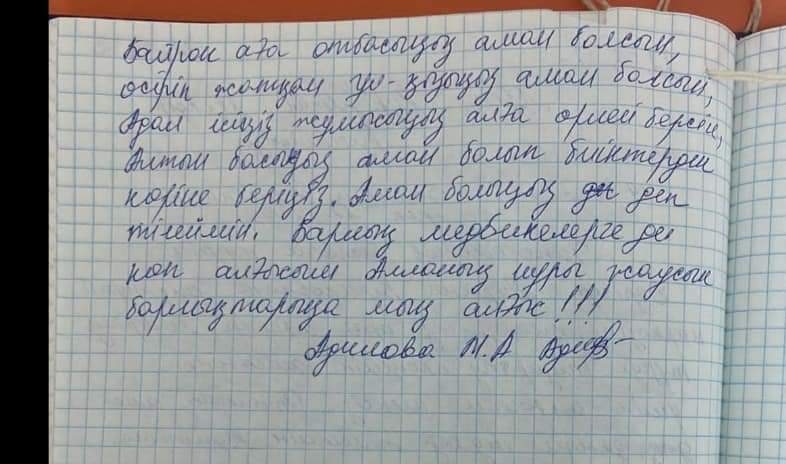 Байрон аға отбасыңыз аман болсын,
өсіріп жатқан ұл-қызыңыз аман болсын,
Адал ісіңіз жұмысыңыз алға өрлей берсін,
Алтын басыңыз аман болып биіктерден
көріне беріңіз. Аман болыңыз деп
тілеймін. Барлық медбикелерге де
көп алғысым Алланың нұры жаусын
барлықтарыңа мың алғыс!!!
Адилова М.А